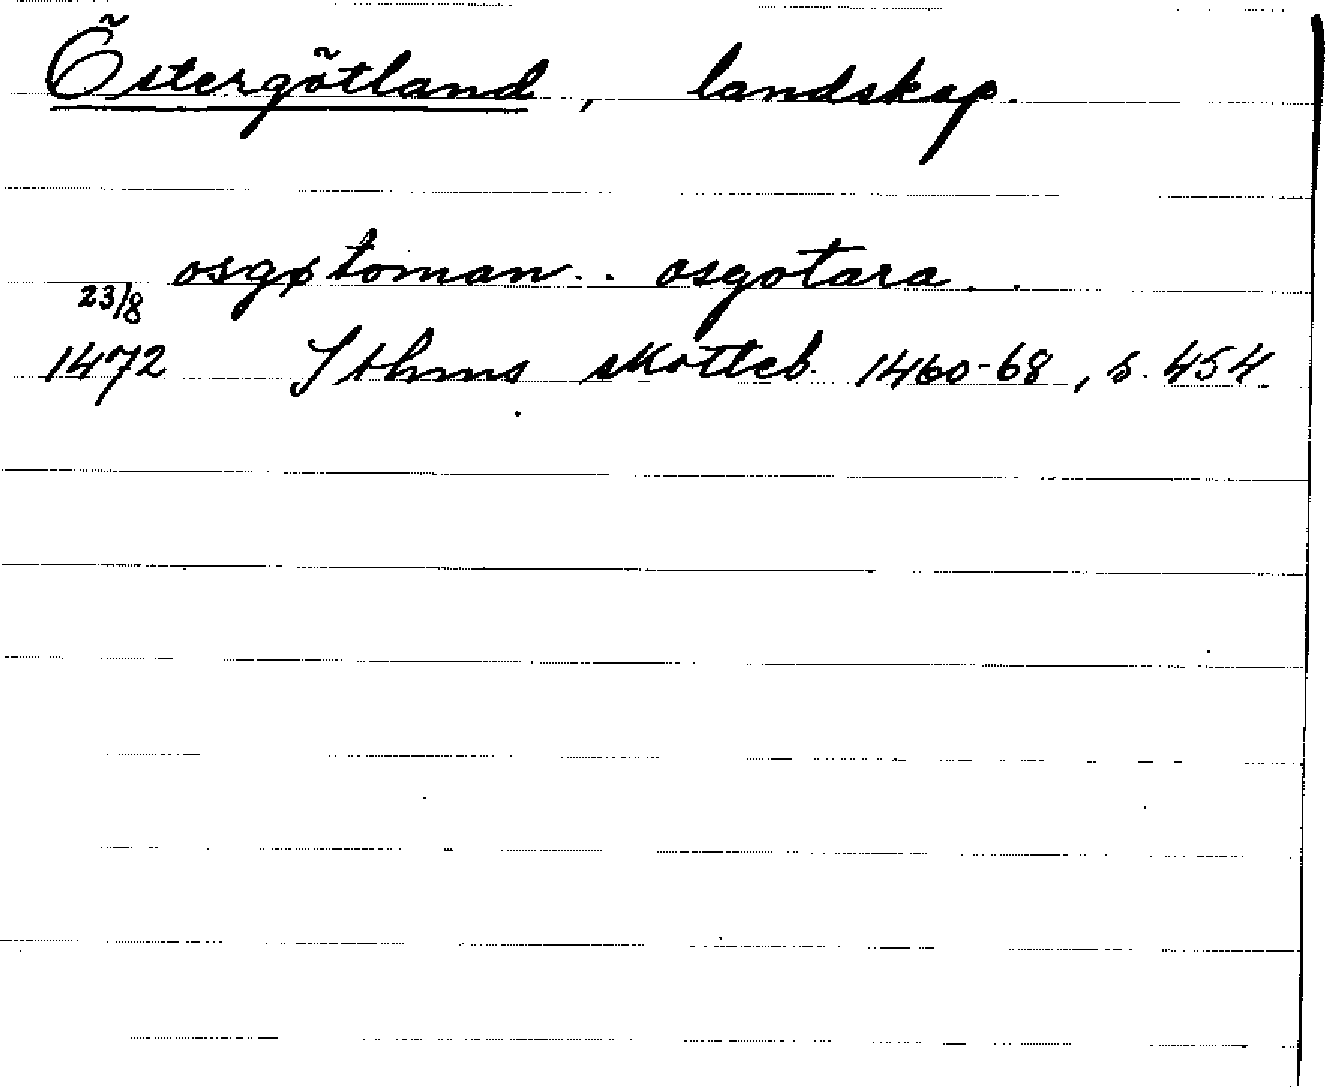 Östergötland, landskap.
osgøtoman . . osgotara . .
23/8
1472 Sthms skotteb. 1460-68, s. 454